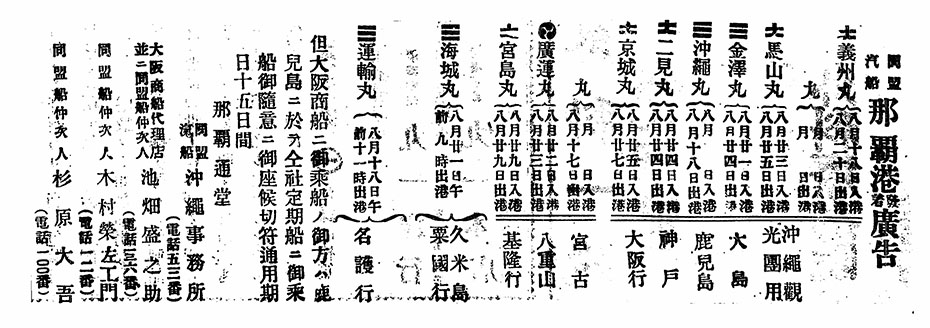 同盟汽船 那覇港發着廣告
義州丸 八月十八日入港
八月二十日出港
丸 月 日入港
月 日出港
馬山丸 八月廿三日入港
八月廿五日出港
沖繩觀光團用
金澤丸 日入港
八月廿四日出港
大島
沖繩丸 八月 日入港
八月十八日出港
鹿兒島
二見丸 日入港
八月廿四日出港
神戶
京城丸 日入港
八月廿七日出港
大阪行
丸 月 日入港
八月十七日出港
宮古
廣運丸 日入港
八月廿三日出港
八重山
宮島丸 日入港
八月廿九日出港
基隆行
海城丸 八月廿一日午前九時出港
久米島
粟國行
運輸丸 八月十八日午前十一時出港
名護行
但大阪商船ニ御乘船ノ御方ハ鹿
兒島ニ於テ仝社定期船ニ御乘
船御隨意ニ御座候切符通用期
日十五日間
那覇通堂
同盟滊船 沖繩事務所
(電話五三番)
大阪商船代理店
並ニ同盟船仲次人 池畑盛之助
(電話一三六番)
同盟船仲次人 木村榮左エ門
(電話一一二番)
同盟船仲次人 杉原大吾
(電話一〇〇番)